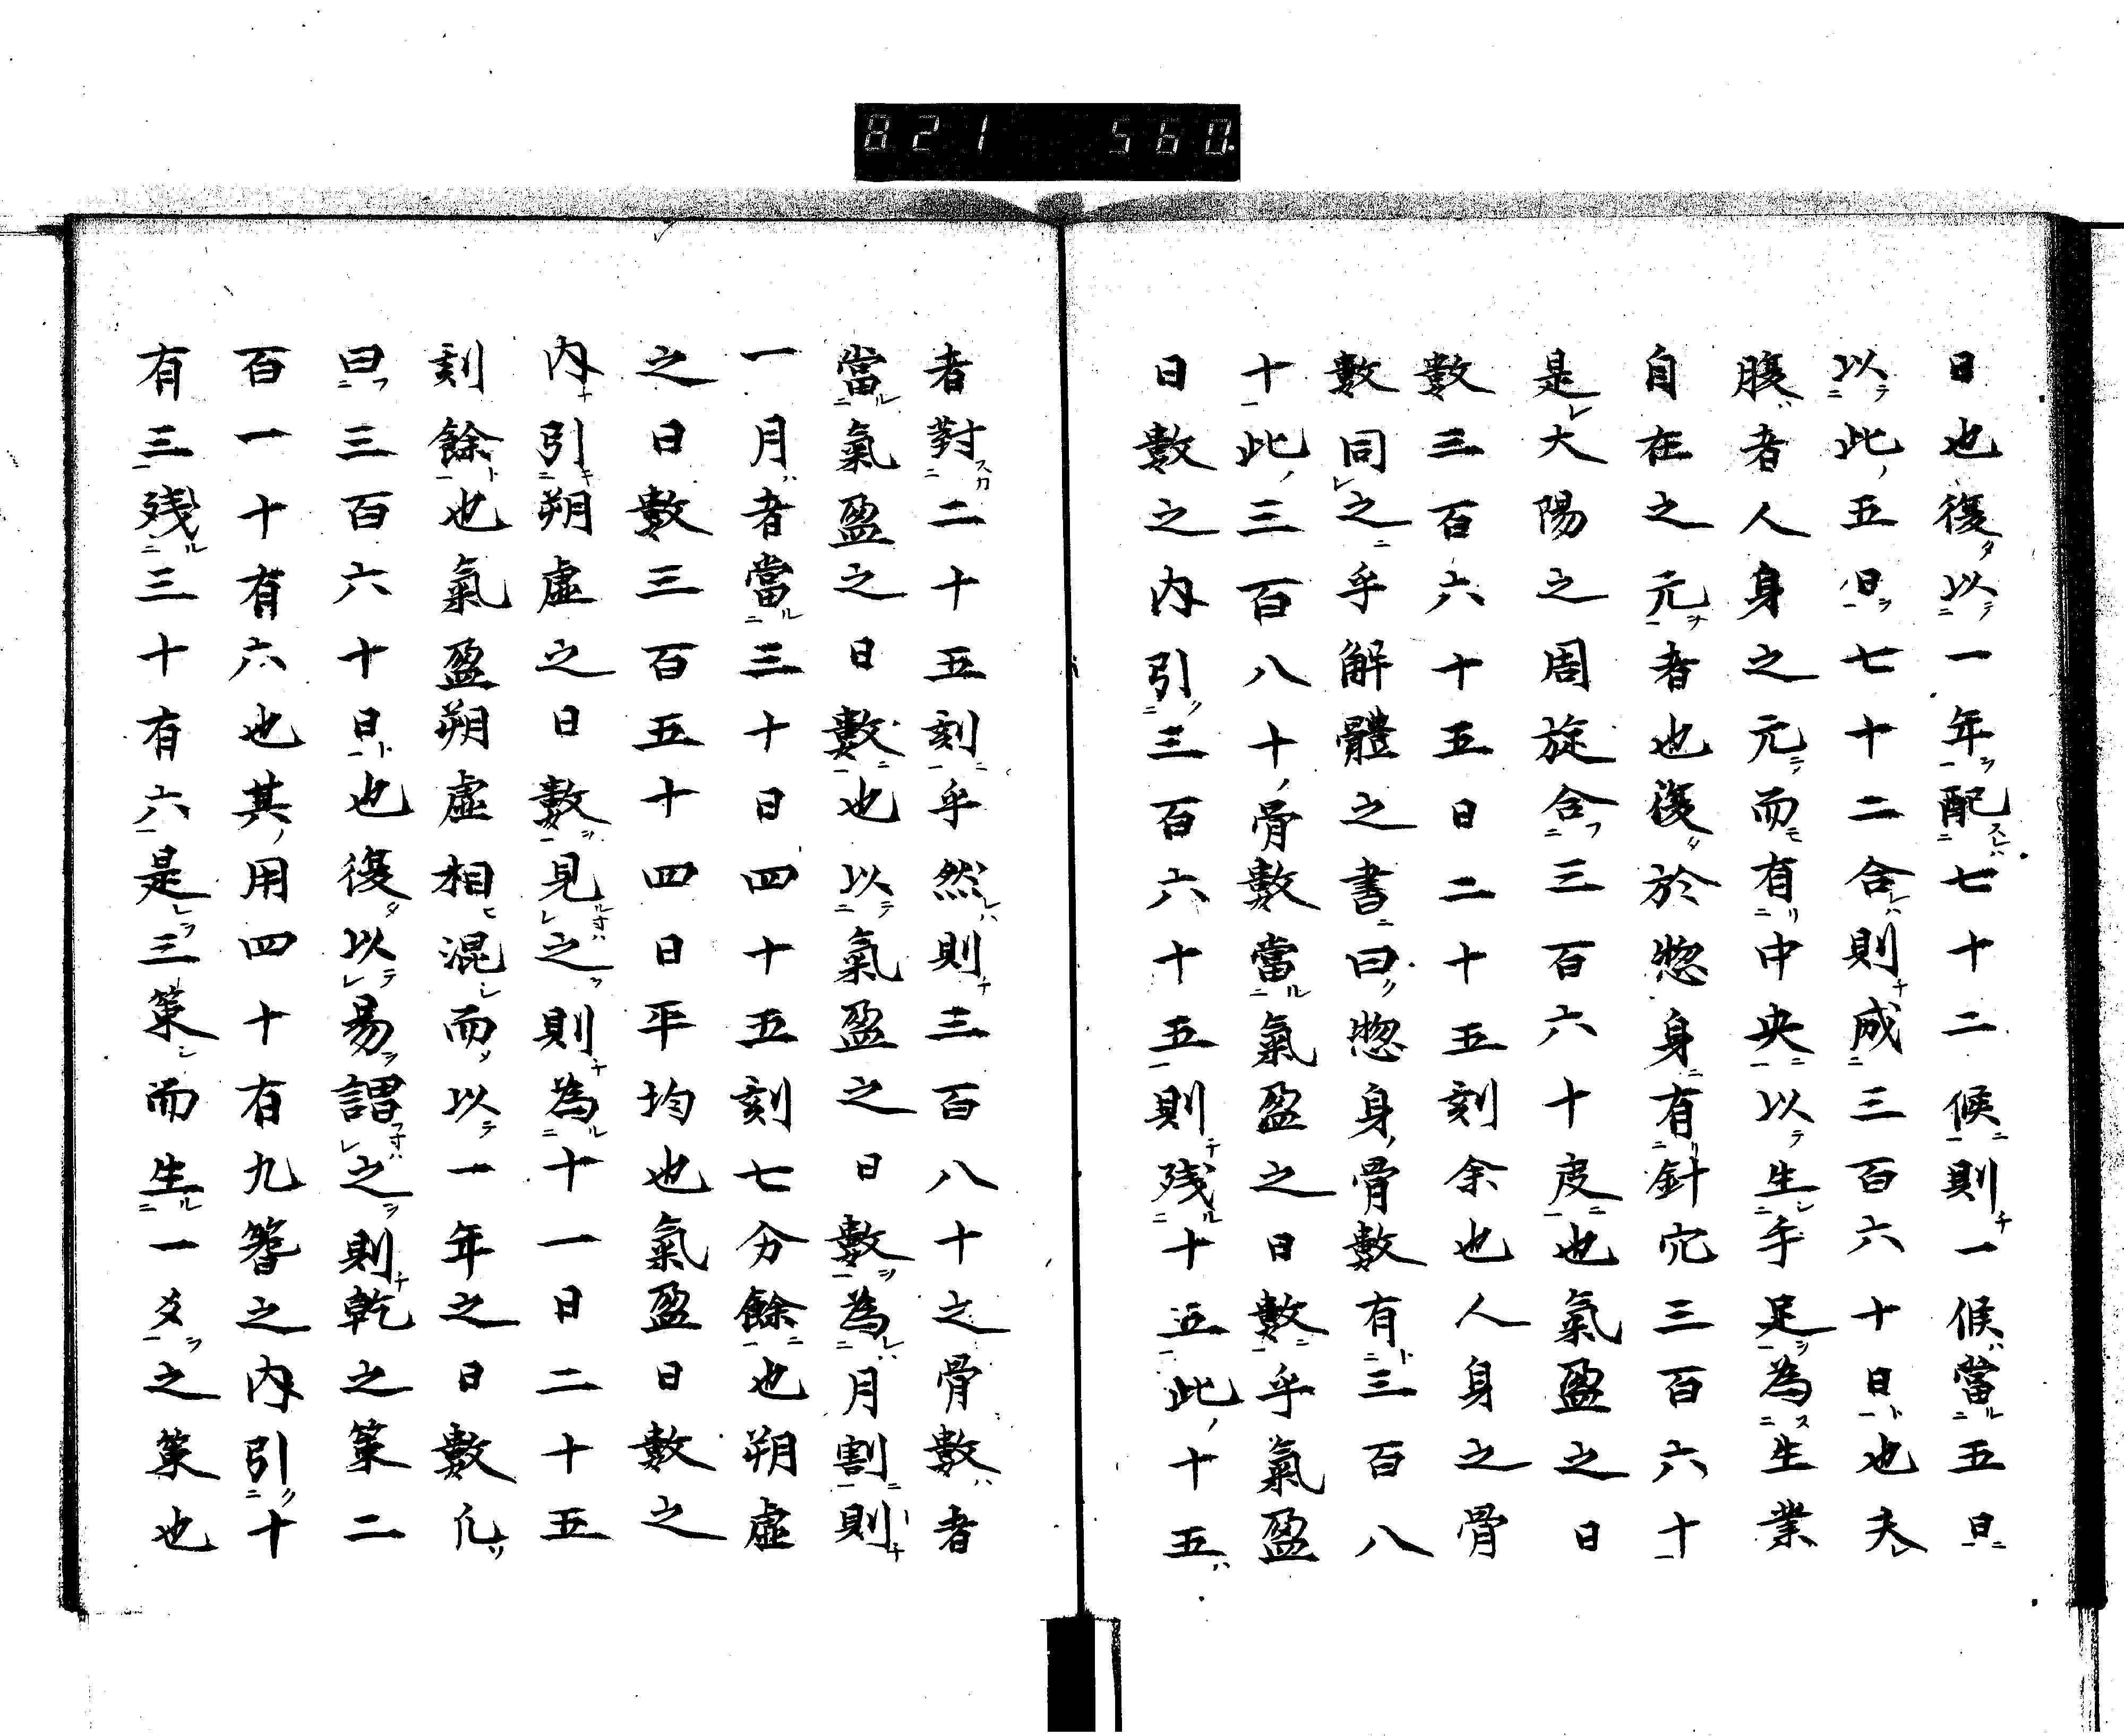 821 560
日也復以一年配七十二候則一候當五日
以此五日七十二合則成三百六十日也夫
腹者人身之元而有中央以生手足為生業
自在之元者也復於惣身有針穴三百六十
是大陽之周旋合三百六十度也氣盈之日
數三百六十五日二十五刻余也人身之骨
數同之乎解體之書曰惣身骨數有三百八
十此三百八十骨數當氣盈之日數乎氣盈
日數之内引三百六十五則残十五此十五
者對二十五刻乎然則三百八十之骨數者
當氣盈之日數也以氣盈之日數為月割則
一月者當三十日四十五刻七分餘也朔虛
之日數三百五十四日平均也氣盈日數之
内引朔虛之日數見之則為十一日二十五
刻餘也氣盈朔虛相混而以一年之日數凢
曰三百六十日也復以易謂之則乾之策二
百一十有六也其用四十有九筭之内引十
有三残三十有六是三策而生一爻之策也